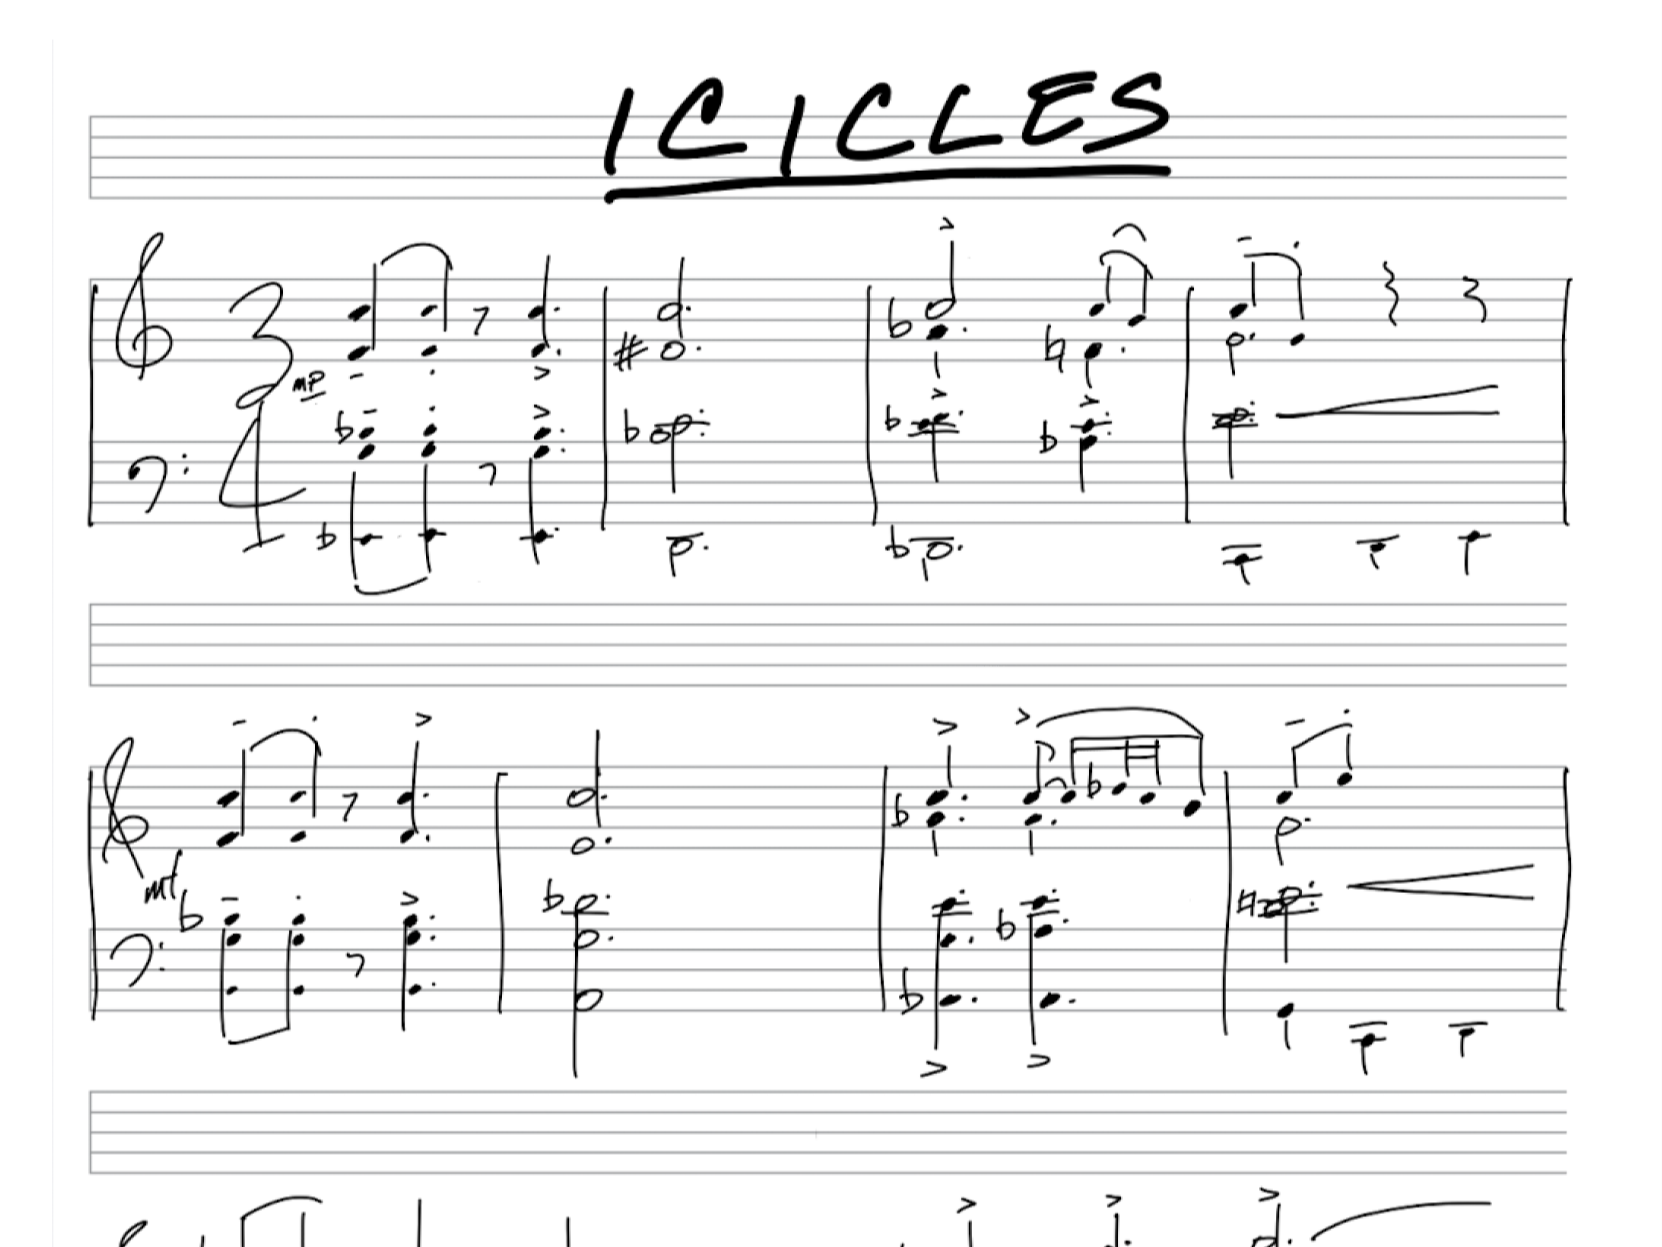 ICICLES
3
4
mp
mf